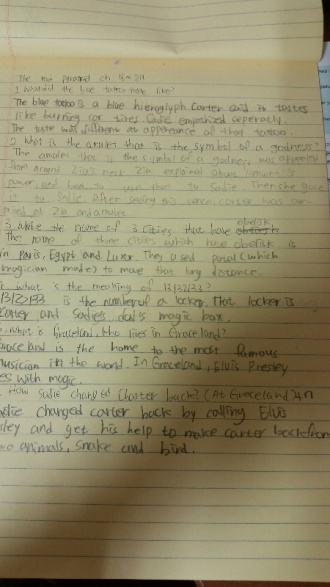 The red pyramid ch
1. What did the blue tattoo taste like?
The blue tattoo is a blue hieroglyph Carter and it tastes
like burning car tires Sadie emphasized
The taste was different at appearance of that tattoo.
2. What is the amulet that is the symbol of a godness?
The amulet that is the symbol of a godness was appeared
Zia's neck Zia explained about amulet's
power, and how to use that to Sadie. Then she gave
it to Sadie. After seeing this Carter was
at Zia and amulet.
3. write the name of 3 cities that have obelisk
The name of three cities which have obelisk is
in Paris, Egypt and Luxor. They used potal (which
magician made) to move that long distance.
what is the meaning of 13/32/33?
13/32/33 is the number of a locker. That locker is
Carter and Sadie's dad's magic box.
what is Graceland. Who lives in Graceland?
Graceland is the home to the most famous
musician in the world. In Graceland, Elvis Presley
with magic.
How Sadie changed Charter back? (At Graceland)
Sadie changed carter back by calling Elvis
and get his help to make carter back from
two animals, snake and bird.